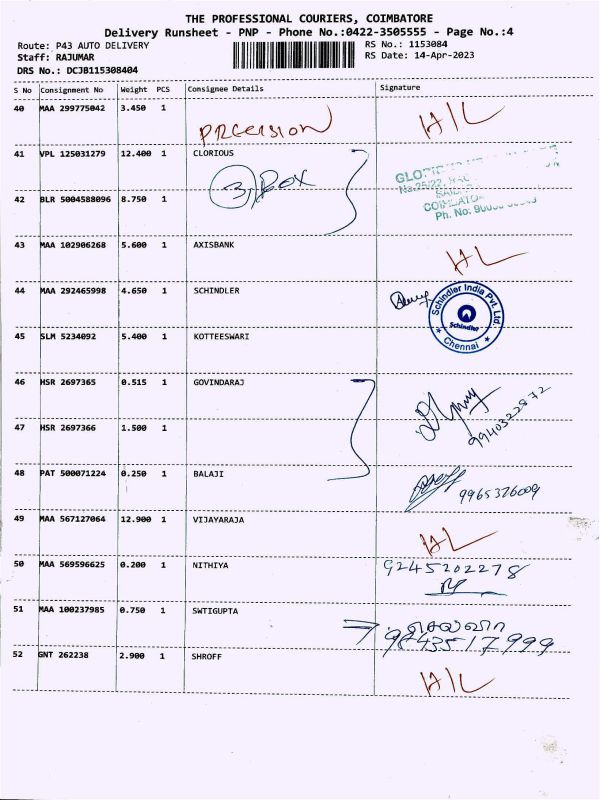 THE PROFESSIONAL COURIERS, COIMBATORE
Delivery Runsheet - PNP - Phone No.:0422-3505555 - Page No.:4
Route: P43 AUTO DELIVERY RS No.: 1153084
Staff: RAJUMAR RS Date: 14-Apr-2023
DRS No.: DCJB115308404
S No Consignment No Weight PCS Consignee Details Signature
40 MAA 299775042 3.450 1 H/L
PRECERSION
41 VPL 125031279 12.400 1 CLORIOUS
3, Box
42 BLR 5004588096 8.750 1
Ph. No:
43 MAA 102906268 5.600 1 AXISBANK
H/L
44 MAA 292465998 4.650 1 SCHINDLER
Schindler India Pvt. Ltd.
Schindler
Chennai
45 SLM 5234092 5.400 1 KOTTEESWARI
46 HSR 2697365 0.515 1 GOVINDARAJ
9940322872
47 HSR 2697366 1.500 1
48 PAT 500071224 0.250 1 BALAJI
9965326009
49 MAA 567127064 12.900 1 VIJAYARAJA
H/L
50 MAA 569596625 0.200 1 NITHIYA 9245202278
51 MAA 100237985 0.750 1 SWTIGUPTA
9843517999
52 GNT 262238 2.900 1 SHROFF
H/L